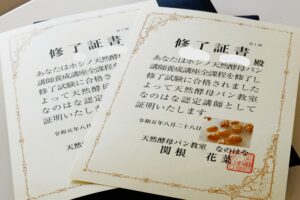 修了証書
あなたはホシノ天然酵母パン
講師養成講座全課程を修了し
修了試験に合格されました
よって天然酵母パン教室
なのはな認定講師として
証明いたします
令和五年八月
天然酵母パン
修了証書
殿
あなたはホシノ天然酵母パン
講師養成講座全課程を修了し
修了試験に合格されました
よって天然酵母パン教室
なのはな認定講師として
証明いたします
令和五年八月二十八日
天然酵母パン教室 なのはな
関根 花菜